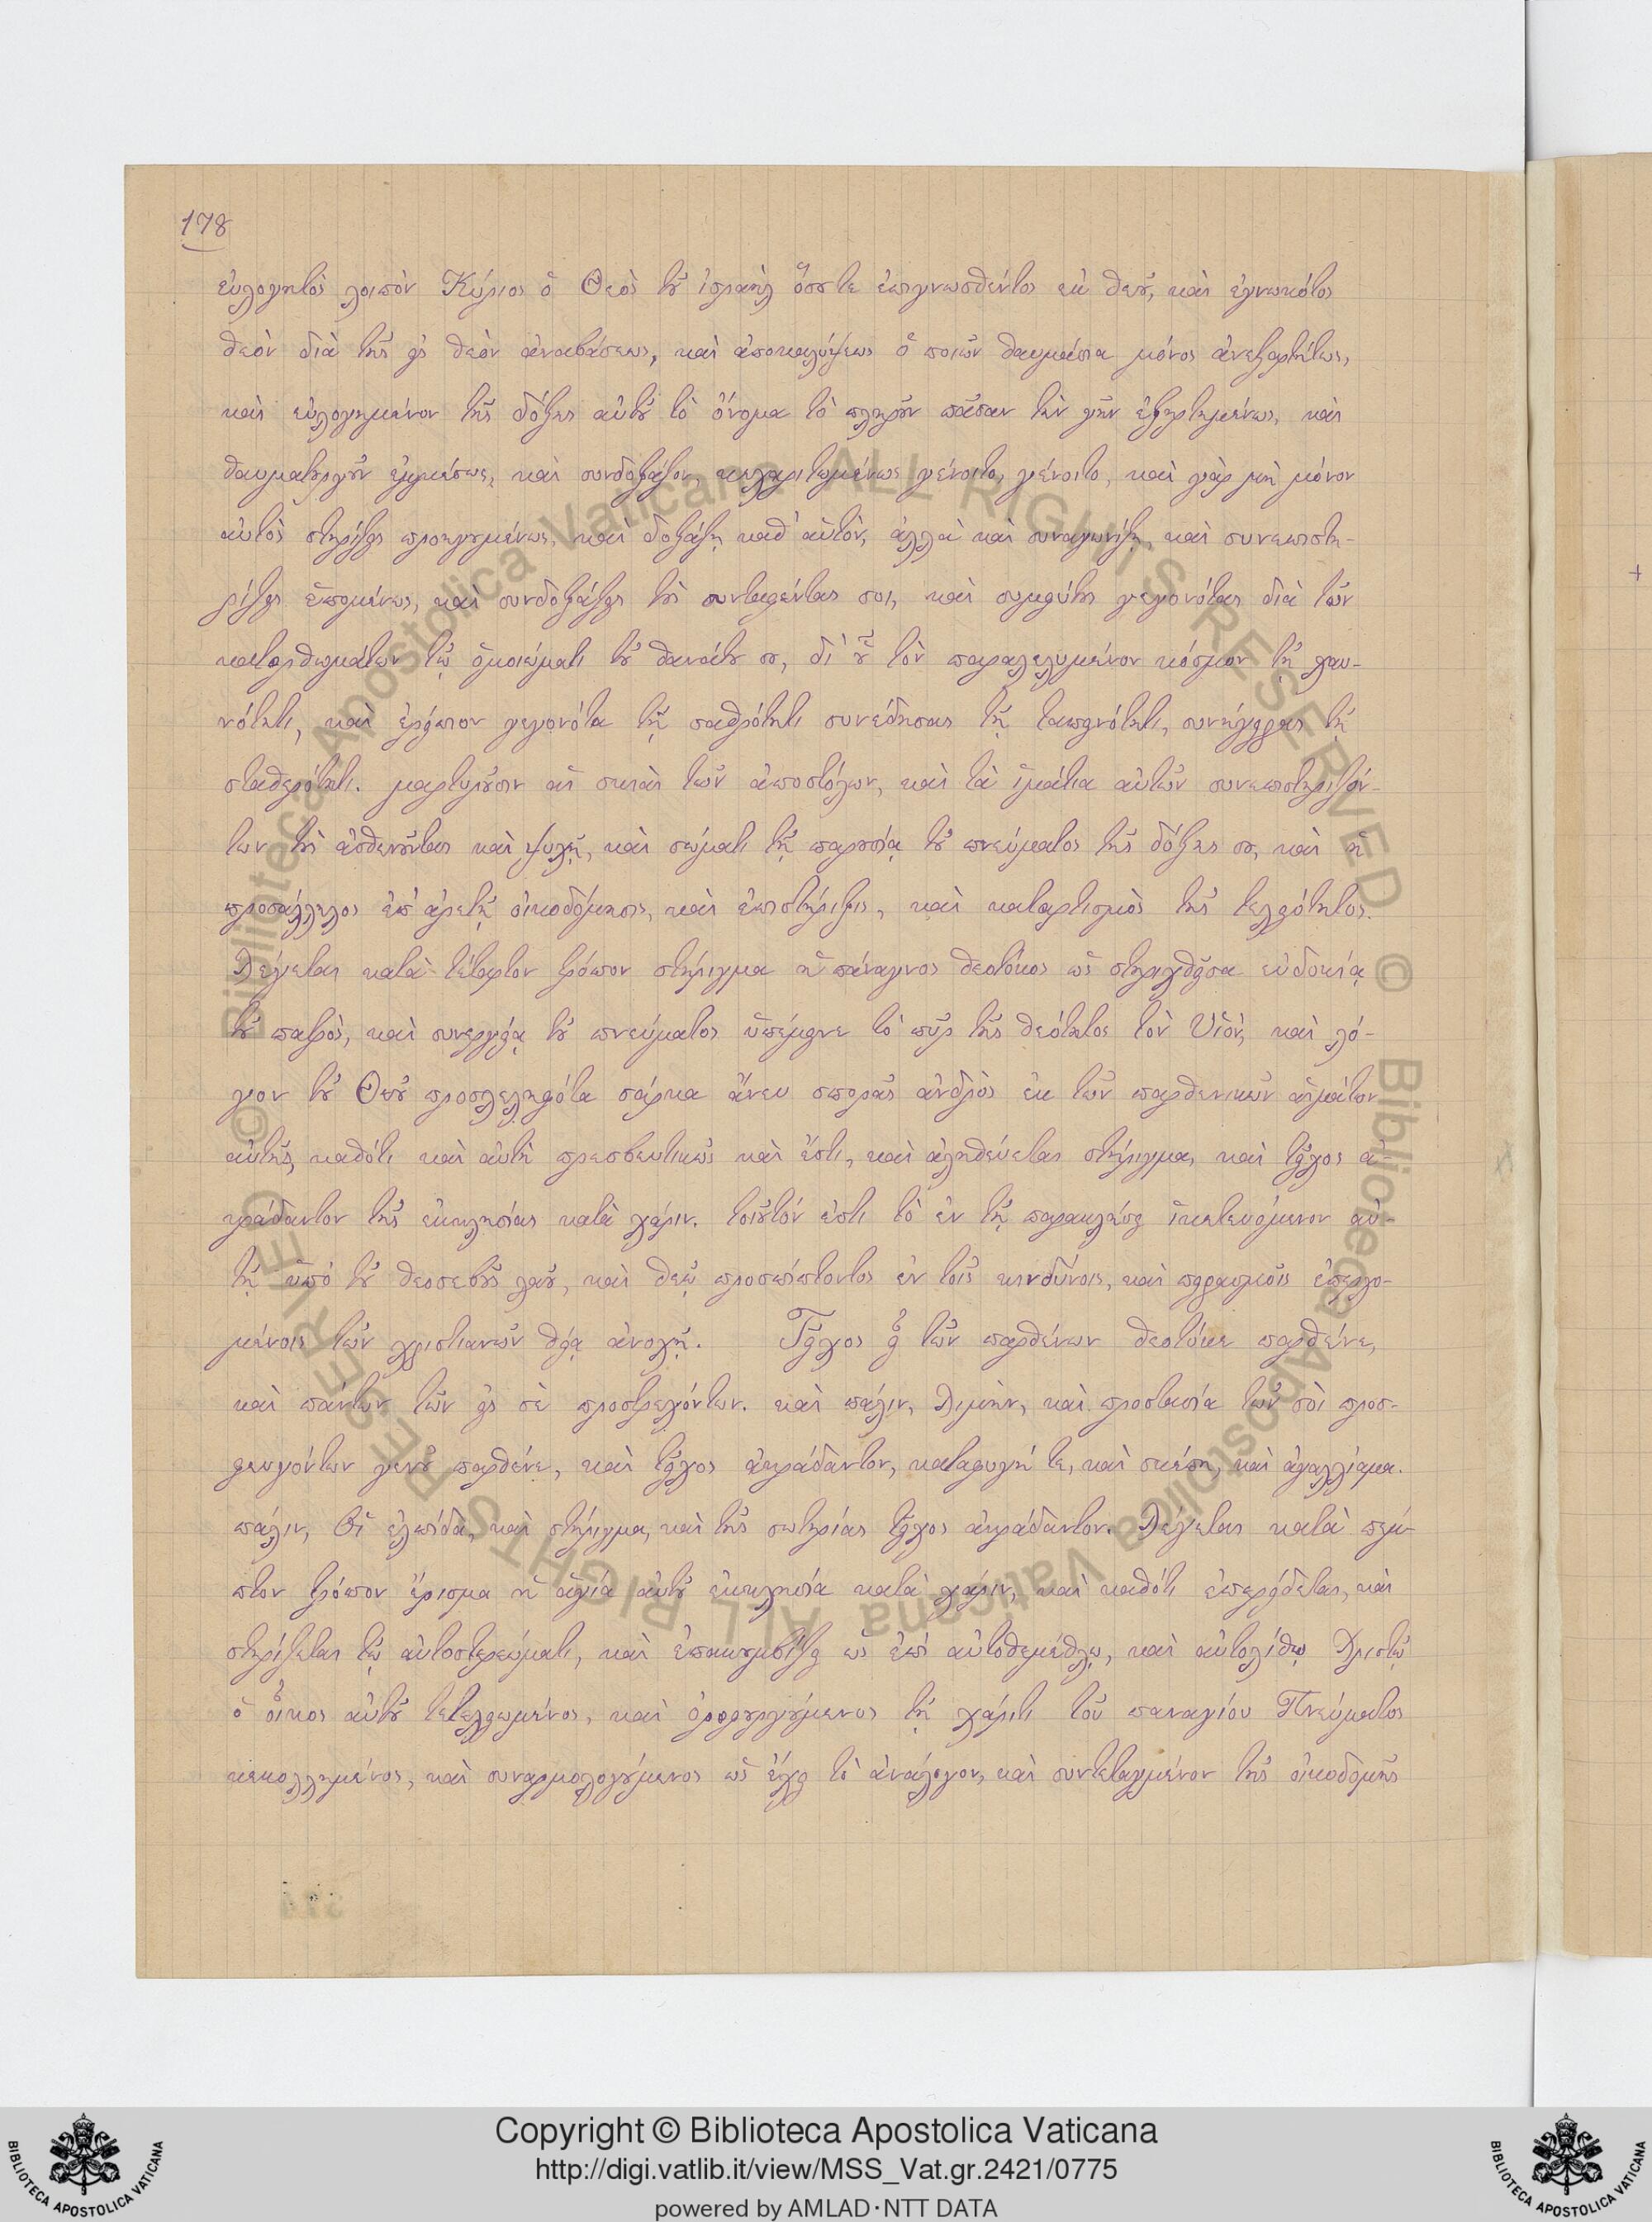 178
εὐλογητὸς λοιπὸν Κύριος ὁ Θεὸς τοῦ ἰσραὴλ ὅστε ἐπιγνωσθέντος ἐκ θεοῦ, καὶ ἐγνωκότος
θεὸν διὰ τῆς εἰς θεὸν ἀναβάσεως, καὶ ἀποκαλύψεως ὁ ποιῶν θαυμάσια μόνος ἀνεξαρτήτως,
καὶ εὐλογημένον τῆς δόξης αὐτοῦ τὸ ὄνομα τὸ πληροῦν πᾶσαν τὴν γῆν ἐξηρτημένως, καὶ
θαυματουργοῦν ἐμμέσως, καὶ συνδοξάζον, κεχαριτωμένως γένοιτο, γένοιτο, καὶ γὰρ μὴ μόνον
αὐτὸς στηρίζεις προηγουμένως, καὶ δοξάζῃ καθ' αὑτόν, ἀλλὰ καὶ συναγωνίζῃ, καὶ συνεπιστη-
ρίζεις ἑπομένως, καὶ συνδοξάζεις τοὺς συνταφέντας σοι, καὶ συμφύτους γεγονότας διὰ τῶν
κατορθωμάτων τῷ ὁμοιώματι τοῦ θανάτου σου, δι' οὗ τὸν παραλελυμένον κόσμον τῇ χαυ-
νότητι, καὶ ἐρείπιον γεγονότα τῇ σαθρότητι συνέδησας τῇ ταπεινότητι, συνήγειρας τῇ
σταθερότητι. μαρτυροῦσιν αἱ σκιαὶ τῶν ἀποστόλων, καὶ τὰ ἱμάτια αὐτῶν συνεπιστηριζόν-
των τοὺς ἀσθενοῦντας καὶ ψυχῇ, καὶ σώματι τῇ παρουσίᾳ τοῦ πνεύματος τῆς δόξης σου, καὶ ἡ
προσάλληλος ἐπ' ἀρετῇ οἰκοδόμησις, καὶ ἐπιστήριξις, καὶ καταρτισμὸς τῆς τελειότητος.
Λέγεται κατὰ τέταρτον τρόπον στήριγμα ἡ πάναγνος θεοτόκος ὡς στηριχθεῖσα εὐδοκίᾳ
τοῦ πατρὸς, καὶ συνεργείᾳ τοῦ πνεύματος ὑπέμεινε τὸ πῦρ τῆς θεότητος τὸν Υἱόν, καὶ λό-
γον τοῦ Θεοῦ προσλεληφότα σάρκα ἄνευ σπορᾶς ἀνδρὸς ἐκ τῶν παρθενικῶν αἱμάτων
αὐτῆς, καθότι καὶ αὐτὴ πρεσβευτικῶς καὶ ἔστι, καὶ ἀληθεύεται στήριγμα, καὶ τεῖχος ἀ-
κράδαντον τῆς ἐκκλησίας κατὰ χάριν. τοιοῦτόν ἐστι τὸ ἐν τῇ παρακλήσει ἱκετευόμενον αὐ-
τῇ ὑπὸ τοῦ θεοσεβοῦς λαοῦ, καὶ θεῷ προσπίπτοντος ἐν τοῖς κινδύνοις, καὶ πειρασμοῖς ἐπερχο-
μένοις τῶν χριστιανῶν θείᾳ ἀνοχῇ. Τεῖχος εἶ τῶν παρθένων θεοτόκε παρθένε,
καὶ πάντων τῶν εἰς σὲ προστρεχόντων. καὶ πάλιν, Λιμὴν, καὶ προστασία τῶν σοὶ προσ-
φευγόντων γενοῦ παρθένε, καὶ τεῖχος ἀκράδαντον, καταφυγή τε, καὶ σκέπη, καὶ ἀγαλλίαμα.
πάλιν, Οἱ ἐλπίδα, καὶ στήριγμα, καὶ τῆς σωτηρίας τεῖχος ἀκράδαντον. Λέγεται κατὰ πέμ-
πτον τρόπον ἔρεισμα ἡ ἁγία αὐτοῦ ἐκκλησία κατὰ χάριν, καὶ καθότι ἐπερείδεται, καὶ
στηρίζεται τῷ αὐτοστερεώματι, καὶ ἐπακουμβίζει ὡς ἐπὶ αὐτοθεμέθλῳ, καὶ αὐτολίθῳ Χριστῷ
ὁ οἶκος αὐτοῦ τετελειωμένος, καὶ ὀροφουργούμενος τῇ χάριτι τοῦ παναγίου Πνεύματος
κεκολλημένος, καὶ συναρμολογούμενος ὡς ἔχει τὸ ἀνάλογον, καὶ συντεταγμένον τῆς οἰκοδομῆς
Copyright © Biblioteca Apostolica Vaticana
http://digi.vatlib.it/view/MSS_Vat.gr.2421/0775
powered by AMLAD·NTT DATA
BIBLIOTECA APOSTOLICA VATICANA
BIBLIOTECA APOSTOLICA VATICANA
© Biblioteca Apostolica Vaticana ALL RIGHTS RESERVED
© Biblioteca Apostolica Vaticana ALL RIGHTS RESERVED